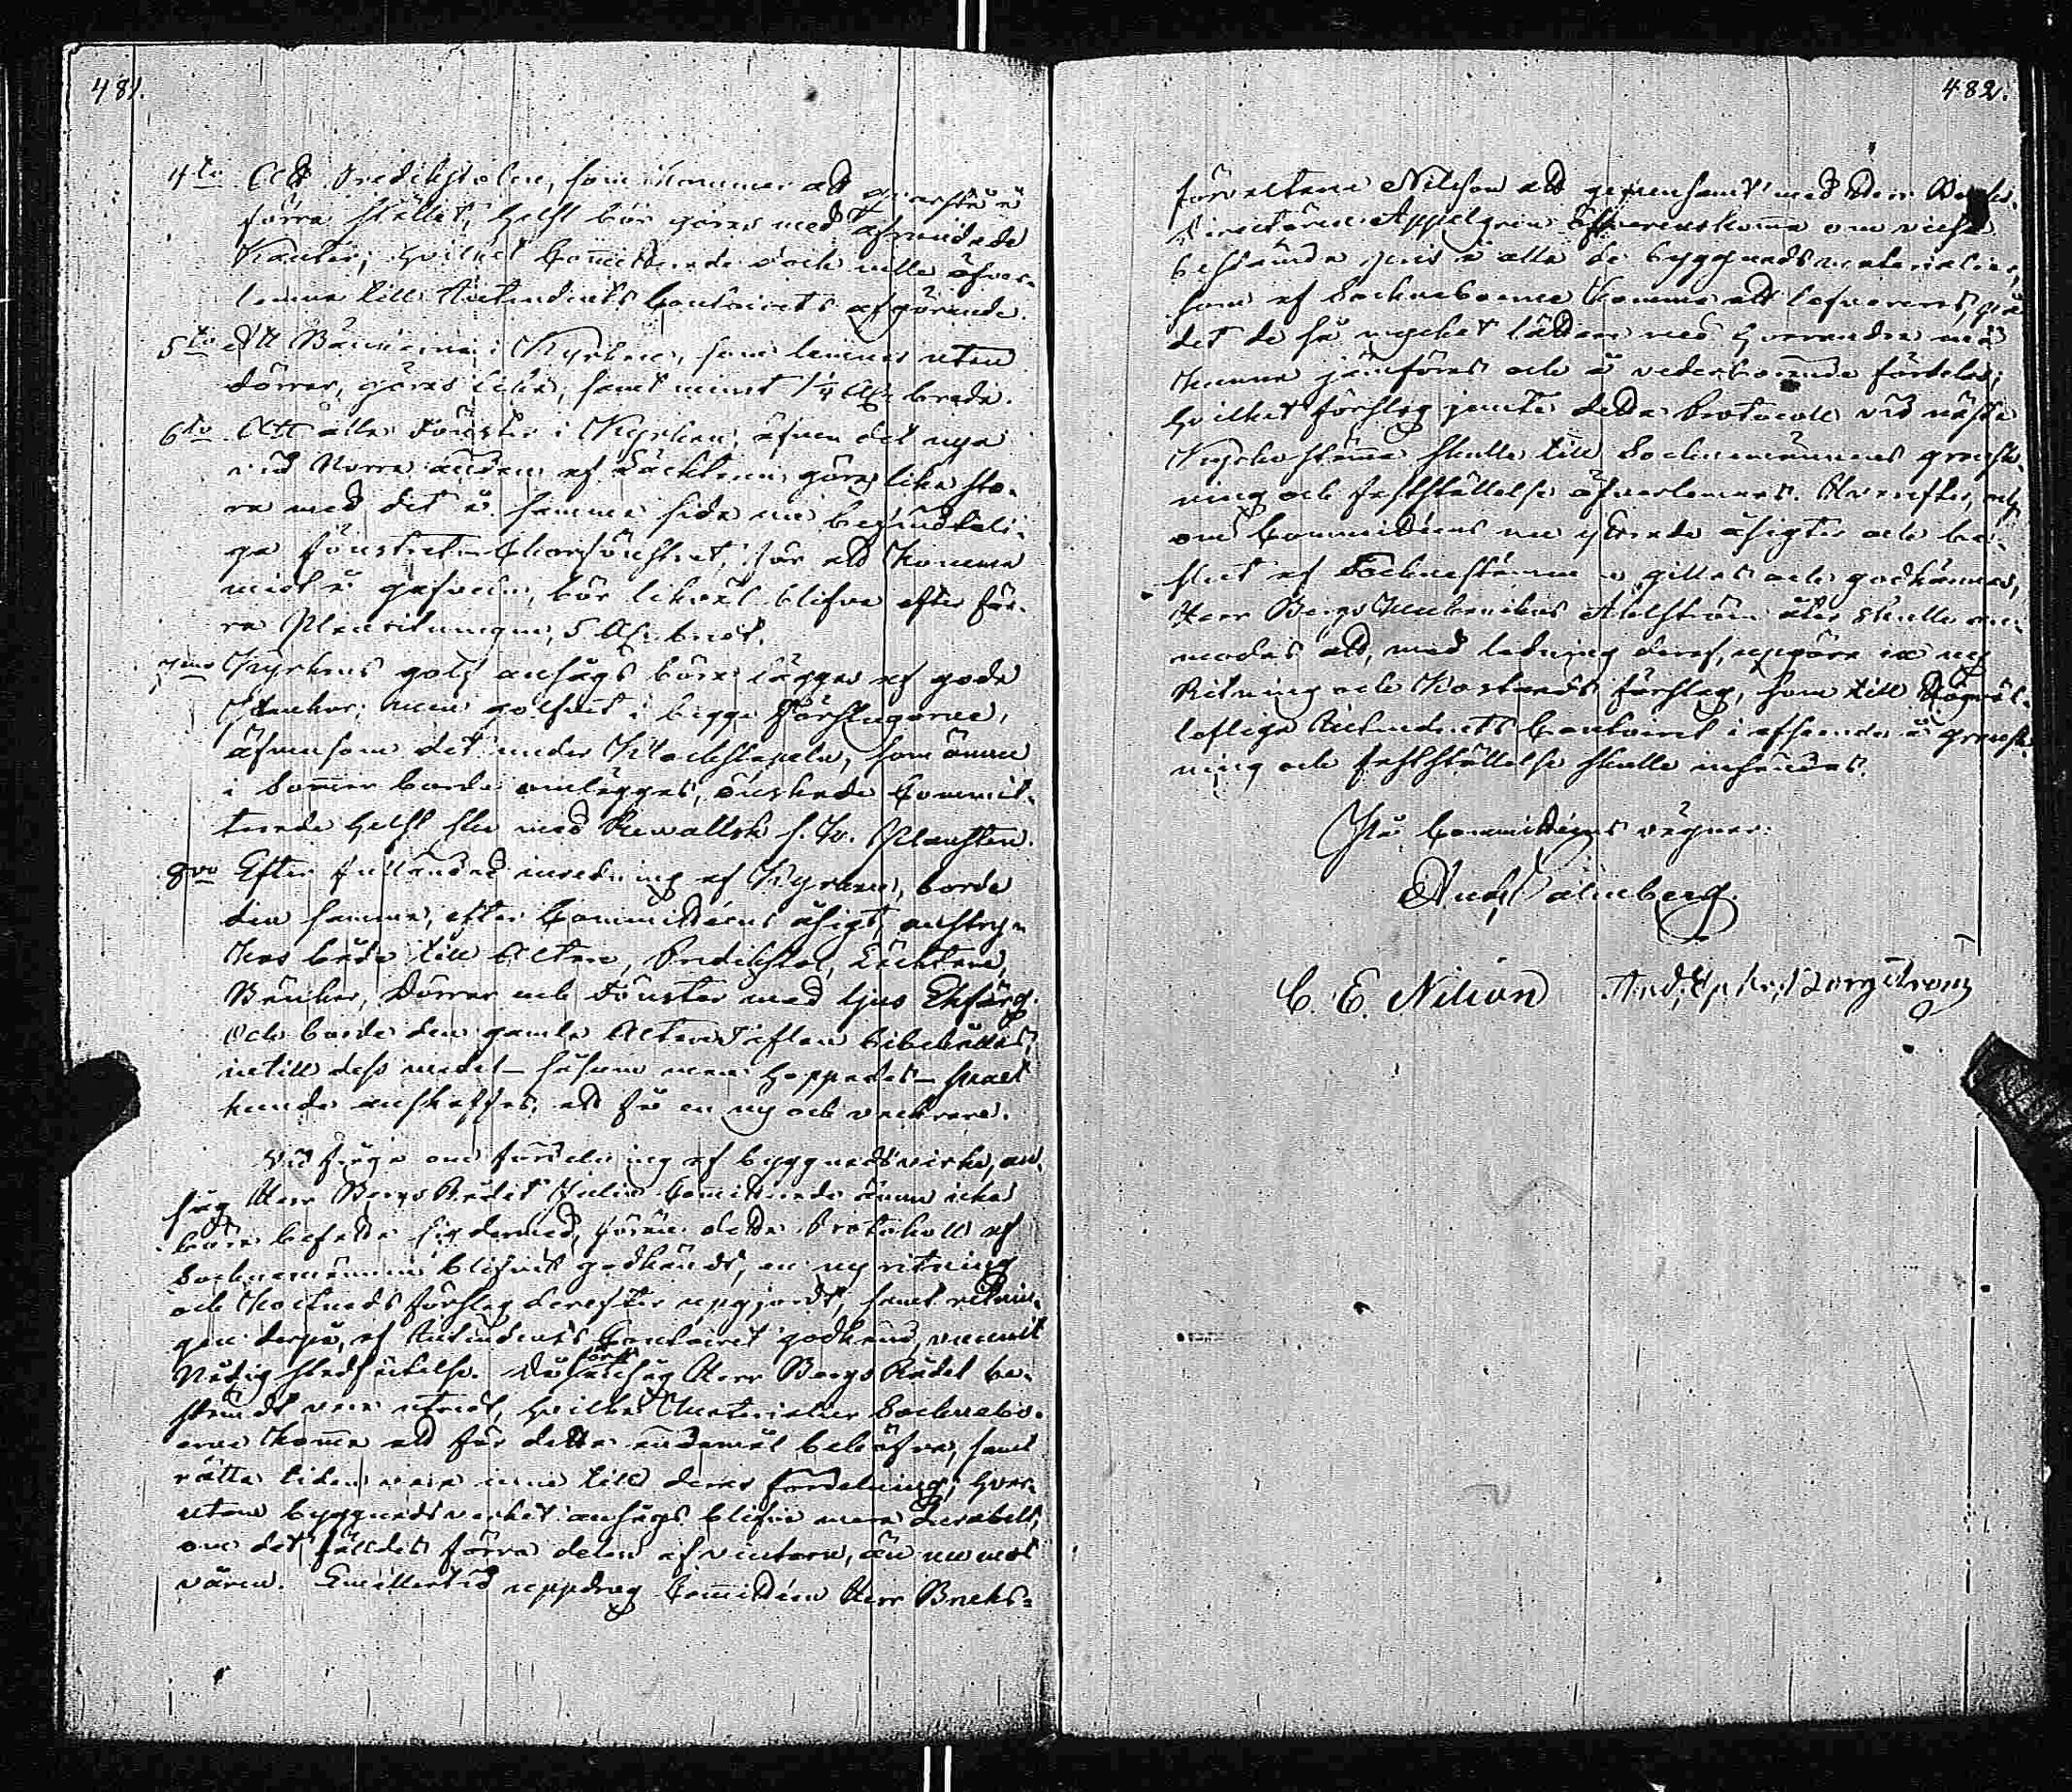 481.
4to Att Predikstolen, som kommer att qvarstå å
förra stället, helst bör göras med afrundade
Kanter, hvilket Committerade dock ville öfver-
lemna till Intendents Contoirets afgörande.
5to Att Bänkarne i Kyrkan, som lemnas utan
dörrar, göras lika, samt minst 1¼ Aln breda.
6to Att alla Fönster i Kyrkan, äfven det nya
vid Norra ändan af Läcktaren, göras lika sto-
ra med det å samma sida nu befindteli-
ga fönstret. Chorfönstret, för att komma
midt å gafveln, bör likväl blifva efter för-
ra Planritningen, 5 Aln bredt.
7mo Kyrkans golf ansågs böra läggas af goda
Plankor; men golfvet i begge Förstugorne,
äfvensom det under Klockstapeln, som ännu
i Sommar borde omläggas, önskade Commit-
terade helst ske med s. k. Plansten.
8vo Efter fulländad inredning af Kyrkan, borde
den samma, efter Committéens åsigt, anstry-
kas både till Altare, Predikstol, Läcktare,
Bänkar, Dörrar och Fönster med ljus Ekfärg
och borde den gamla Altare Taflan bibehållas,
intill dess medel – såsom man hoppades – snart
kunde anskaffas, att få en ny och vackrare.
Vid fråga om fördelning af byggnadsvirke, an-
såg Herr Bergs Rådet Julin Committerade ännu icke
böra befatta sig dermed, förrän detta Protokoll af
Sockenemännen blifvit godkändt, en ny ritning
och Kostnads förslag derefter uppgjordt, samt ritnin-
gen derpå, af Intendents Contoiret godkänd, vunnit
Nådig stadfästelse. Då först ansåg Herr Bergs Rådet be-
stämdt vara utredt, hvilka Materialier Socknebo-
erne komma att för detta ändamål behöfva, samt
rätta tiden vara inne till deras fördelning; hvar-
utom byggnadsverket ansågs blifva mera durabelt,
om det fälldes förra delen af vintern, än nu mot
våren. Emillertid uppdrog Committéen Herr Bruks-
482.
förvaltare Nilsson att gemensamt med Herr
Directören Appelgren öfverenskomma om vissa
bestämda pris å alla de byggnadsmaterialier,
som af Sockneboerne komma att lefvereras, på
det de så mycket lättare med hvarandra må
kunna jämföras och å vederbörande fördelas;
hvilket förslag jemte detta Protocoll vid nästa
Kyrko stämma skulle till Sockenmännens gransk-
ning och fastställelse öfverlemnas. Hvarefter, och
om Committéens nu yttrade åsigter och be-
slut af Socknestämman gillas och godkännas,
Herr Bergs Mechanikus Adelström åter skulle an-
modas att, med ledning deraf, uppgöra en ny
Ritning och Kostnads förslag, som till Högväl-
loflige Intendents Contoiret i afseende å gransk-
ning och fastställelse skulle insändas.
På Committéens vägnar:
And. Palmberg.
C. E. Nilson And. Borgström